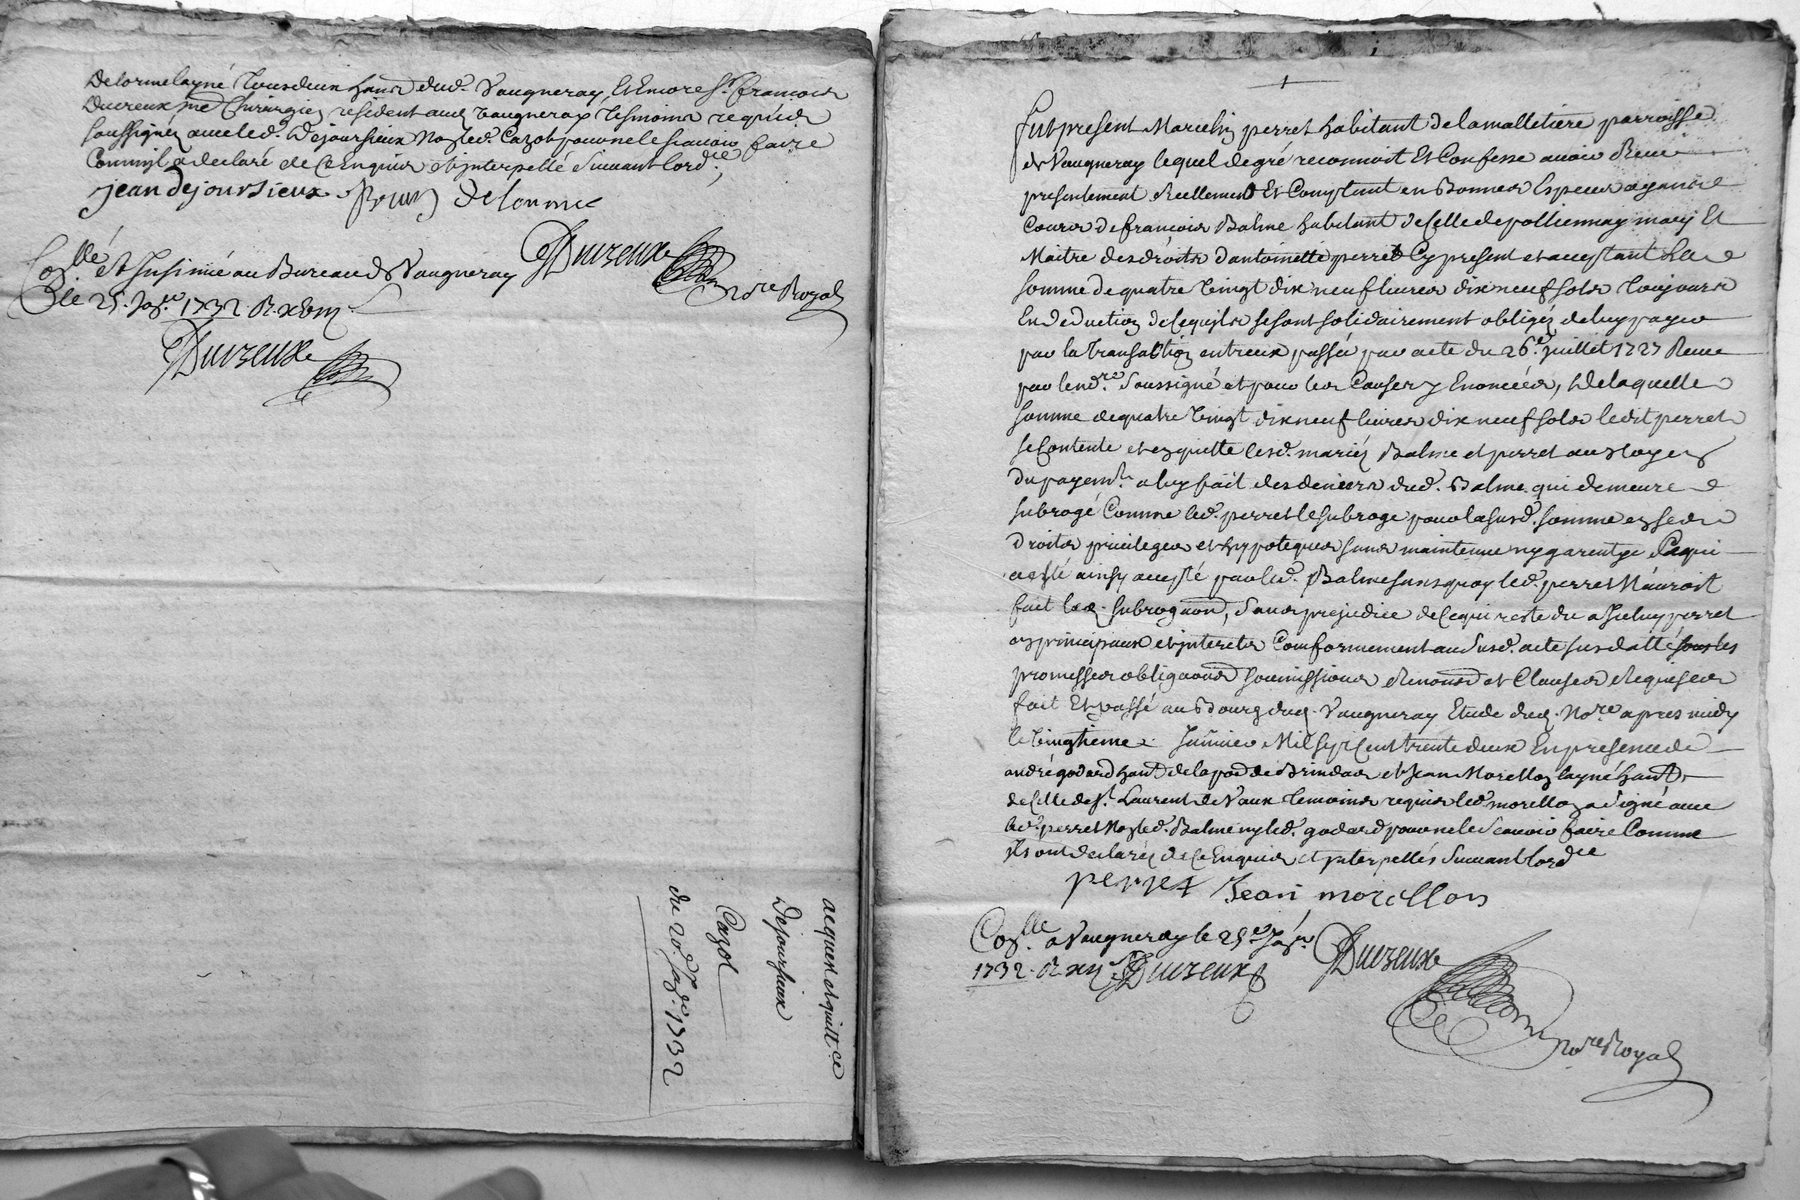 Delorme layné tous deux habts dud. Vaugneray, et encore Sr. francois
Duvreux me Chirurgien resident aud. Vaugneray tesmoins requis
soussignés avec led. Dejoursieux Non led. Cazot pour ne le scavoir faire
Comme il a declaré de ce Enquis et interpellé Suivant lordce.
jean Dejoursieux Delorme
Duvreux
Nore Royal
Conllé et Insinué au Bureau de Vaugneray
le 25. Janer. 1732. R.
Duvreux
acquest et quittce
Dejoursieux
Cazot
du 20e. Janer. 1732
fut present Marcelin perret habitant de la malletiere parroisse
de Vaugneray lequel de gré reconnoit Et Confesse avoir Receu
presentement Reellement Et Comptant en Bonnes Especes ayant
Cours de francois Balme habitant de Celle de pollionnay mary Et
Maitre des droits d'antoinette perret Cy present et acceptant la
somme de quatre Vingt dix neuf livres dix neuf sols toujours
En deduction de Ce quils se sont solidairement obligés de luy payer
par la transaction entreux passée par acte du 26e. juillet 1727 Receue
par le nore. Soussigné et pour les Causes y Enoncées, de laquelle
somme de quatre Vingt dix neuf livres dix neuf sols ledit perret
se Contente et en quitte lesd. mariés Balme et perret au moyen
du payemt. a luy fait des deniers dud. Balme qui demeure
subrogé Comme led. perret le subroge pour la susd. somme en ses
droits privileges et hypoteques sans maintenue ny garentye Ce qui
a esté ainsy accepté par led. Balme sans quoy led. perret N'auroit
fait lad. subrogaon, sans prejudice de Ce qui reste du a Iceluy perret
en principaux et interets Conformement au susd. acte susdatté sous les
promesses obligaons soumissions Renonons et Clauses Requises
fait Et passé au Bourg dud. Vaugneray Etude dud. Nore. apres midy
le Vingtieme Janvier Mil sept Cent trente deux En presence de
andré godard habt. de la parr de Brindas et Jean Morellon layné habt.
de Celle de St. Laurent de Vaux temoins requis led. morellon a Signé avec
led. perret Non led. Balme ny led. godard pour ne le Scavoir faire Comme
ils ont declarés de Ce Enquis et interpellés Suivant lordce
perret Jean morellon
Conllé. a Vaugneray le 25e Janer.
1732. R. xii s. Duvreux
Duvreux
Nore Royal